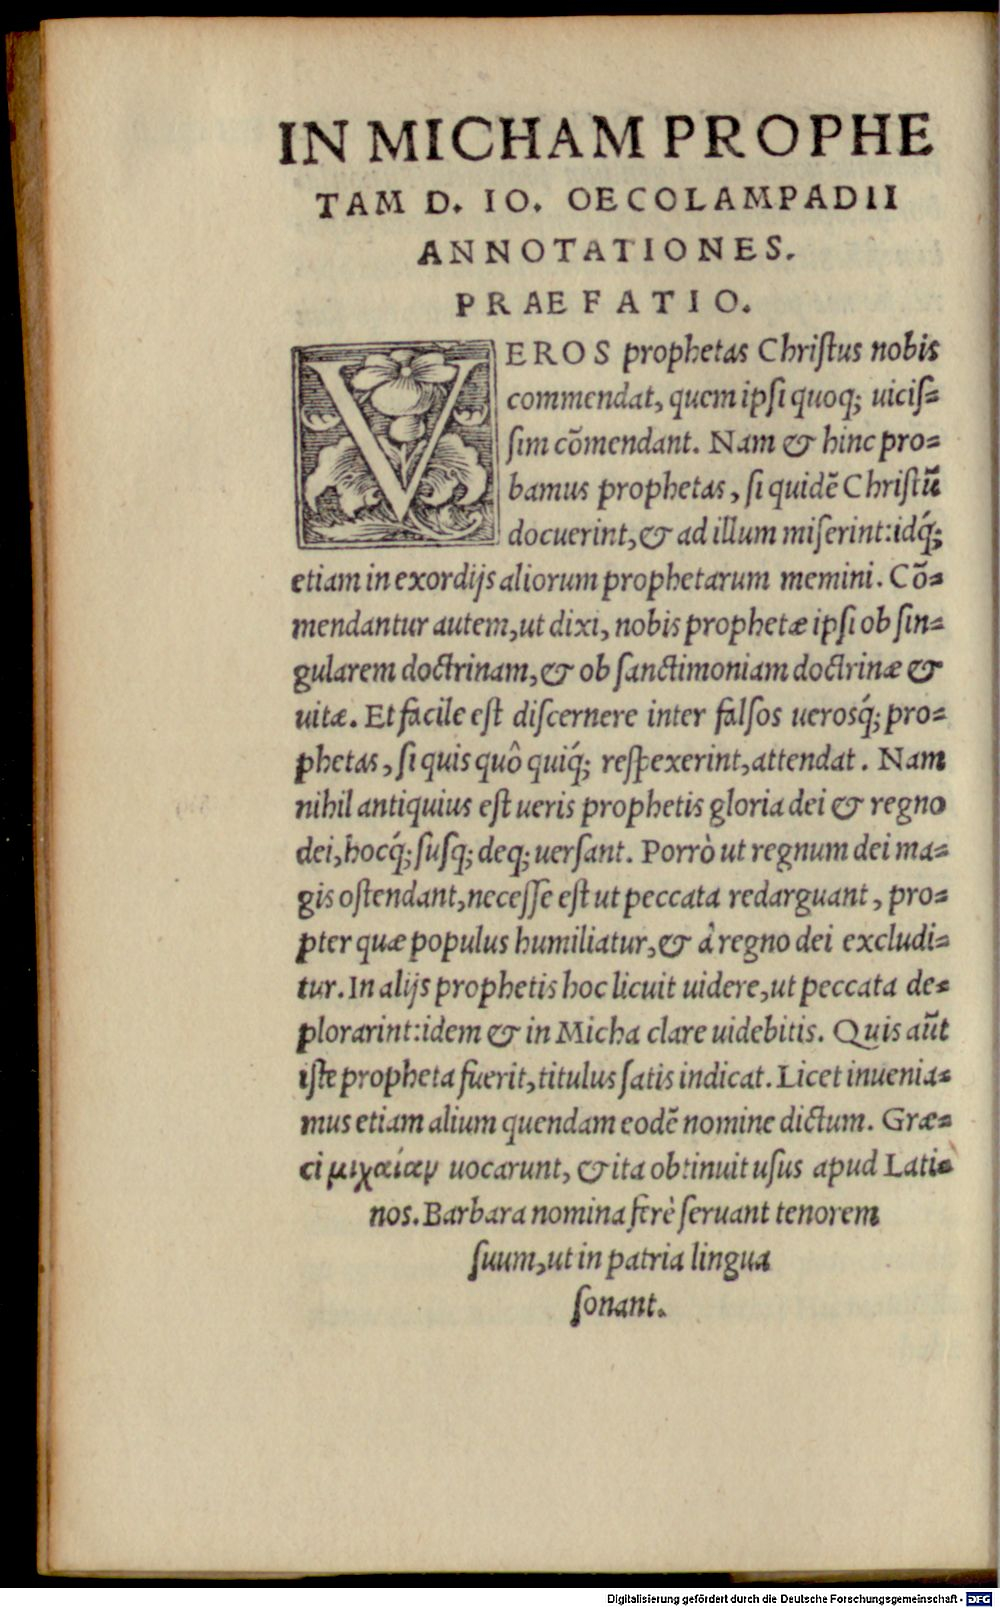 IN MICHAM PROPHE
TAM D. IO. OECOLAMPADII
ANNOTATIONES.
PRAEFATIO.
VEROS prophetas Chriſtus nobis
commendat, quem ipſi quoq; uiciſ=
ſim cōmendant. Nam & hinc pro=
bamus prophetas, ſi quidē Chriſtū
docuerint, & ad illum miſerint: idq́;
etiam in exordijs aliorum prophetarum memini. Cō=
mendantur autem, ut dixi, nobis prophetæ ipſi ob ſin=
gularem doctrinam, & ob ſanctimoniam doctrinæ &
uitæ. Et facile eſt diſcernere inter falſos uerosq́; pro=
phetas, ſi quis quô quiq́; reſpexerint, attendat. Nam
nihil antiquius eſt ueris prophetis gloria dei & regno
dei, hocq́; ſuſq; deq; uerſant. Porrò ut regnum dei ma=
gis oſtendant, neceſſe eſt ut peccata redarguant, pro=
pter quæ populus humiliatur, & à regno dei excludi=
tur. In alijs prophetis hoc licuit uidere, ut peccata de=
plorarint: idem & in Micha clare uidebitis. Quis aūt
iſte propheta fuerit, titulus ſatis indicat. Licet inuenia=
mus etiam alium quendam eodē nomine dictum. Græ=
ci μιχαίαν uocarunt, & ita obtinuit uſus apud Lati=
nos. Barbara nomina ferè ſeruant tenorem
ſuum, ut in patria lingua
ſonant.
Digitalisierung gefördert durch die Deutsche Forschungsgemeinschaft - DFG